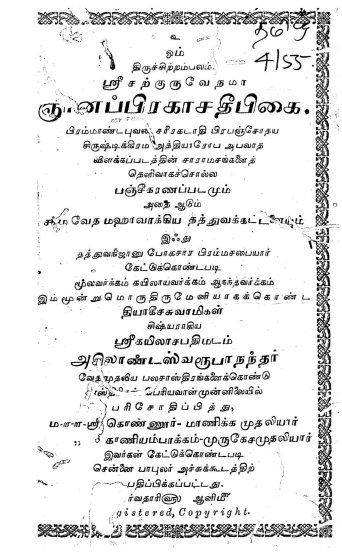 உ
ஓம்
திருச்சிற்றம்பலம்.
ஸ்ரீசற்குருவேநமா
ஞானப்பிரகாசதீபிகை.
4/55
பிரம்மாண்டபுவன சரீரகடாதி பிரபஞ்சோதய
சிருஷ்டிக்கிரம அத்தியாரோப அபவாத
விளக்கப்படத்தின் சாராமசங்களைத்
தெளிவாகச்சொல்ல
பஞ்சீகரணப்படமும்
அதை ஆடும்
வேத மஹாவாக்கிய தத்துவக்கட்டளையும்
இஃது
தத்துவகீஜானு போகசார பிரம்மசபையார்
கேட்டுக்கொண்டபடி
மூலவர்க்கம் கயிலாயவர்க்கம் ஆகந்தவர்க்கம்
இம்மூன்றுமொருதிருமேனியாகக்கொண்ட
தியாகேசசுவாமிகள்
சிஷ்யராகிய
ஸ்ரீகயிலாசபதிமடம்
அகிலாண்டஸ்வரூபாநந்தர்
வேதமுதலிய பலசாஸ்திரங்களைக்கொண்டு
பெரியவாள்முன்னிலையில்
பரிசோதிப்பித்து,
ம-ள-ள-ஸ்ரீ கொண்ணூர்-மாணிக்க முதலியார்
காணியம்பாக்கம்-முருகேசமுதலியார்
இவர்கள் கேட்டுக்கொண்டபடி
சென்னை பாபுலர் அச்சுக்கூடத்திற்
பதிப்பிக்கப்பட்டது.
ர்வதாரிஹு ஆனிமீ
gistered, Copyright.